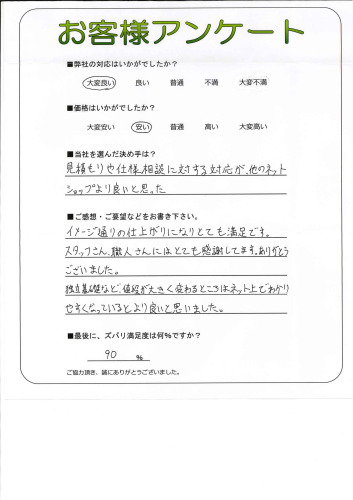 お客様アンケート
■弊社の対応はいかがでしたか？
大変良い 良い 普通 不満 大変不満
■価格はいかがでしたか？
大変安い 安い 普通 高い 大変高い
■当社を選んだ決め手は？
見積もりや仕様相談に対する対応が、他のネット
ショップより良いと思った
■ご感想・ご要望などをお書き下さい。
イメージ通りの仕上がりになりとても満足です。
スタッフさん、職人さんにはとても感謝してます。ありがとう
ございました。
独立基礎など、値段が大きく変わるところはネット上でわかり
やすくなっているとより良いと思いました。
■最後に、ズバリ満足度は何%ですか？
90 %
ご協力頂き、誠にありがとうございました。